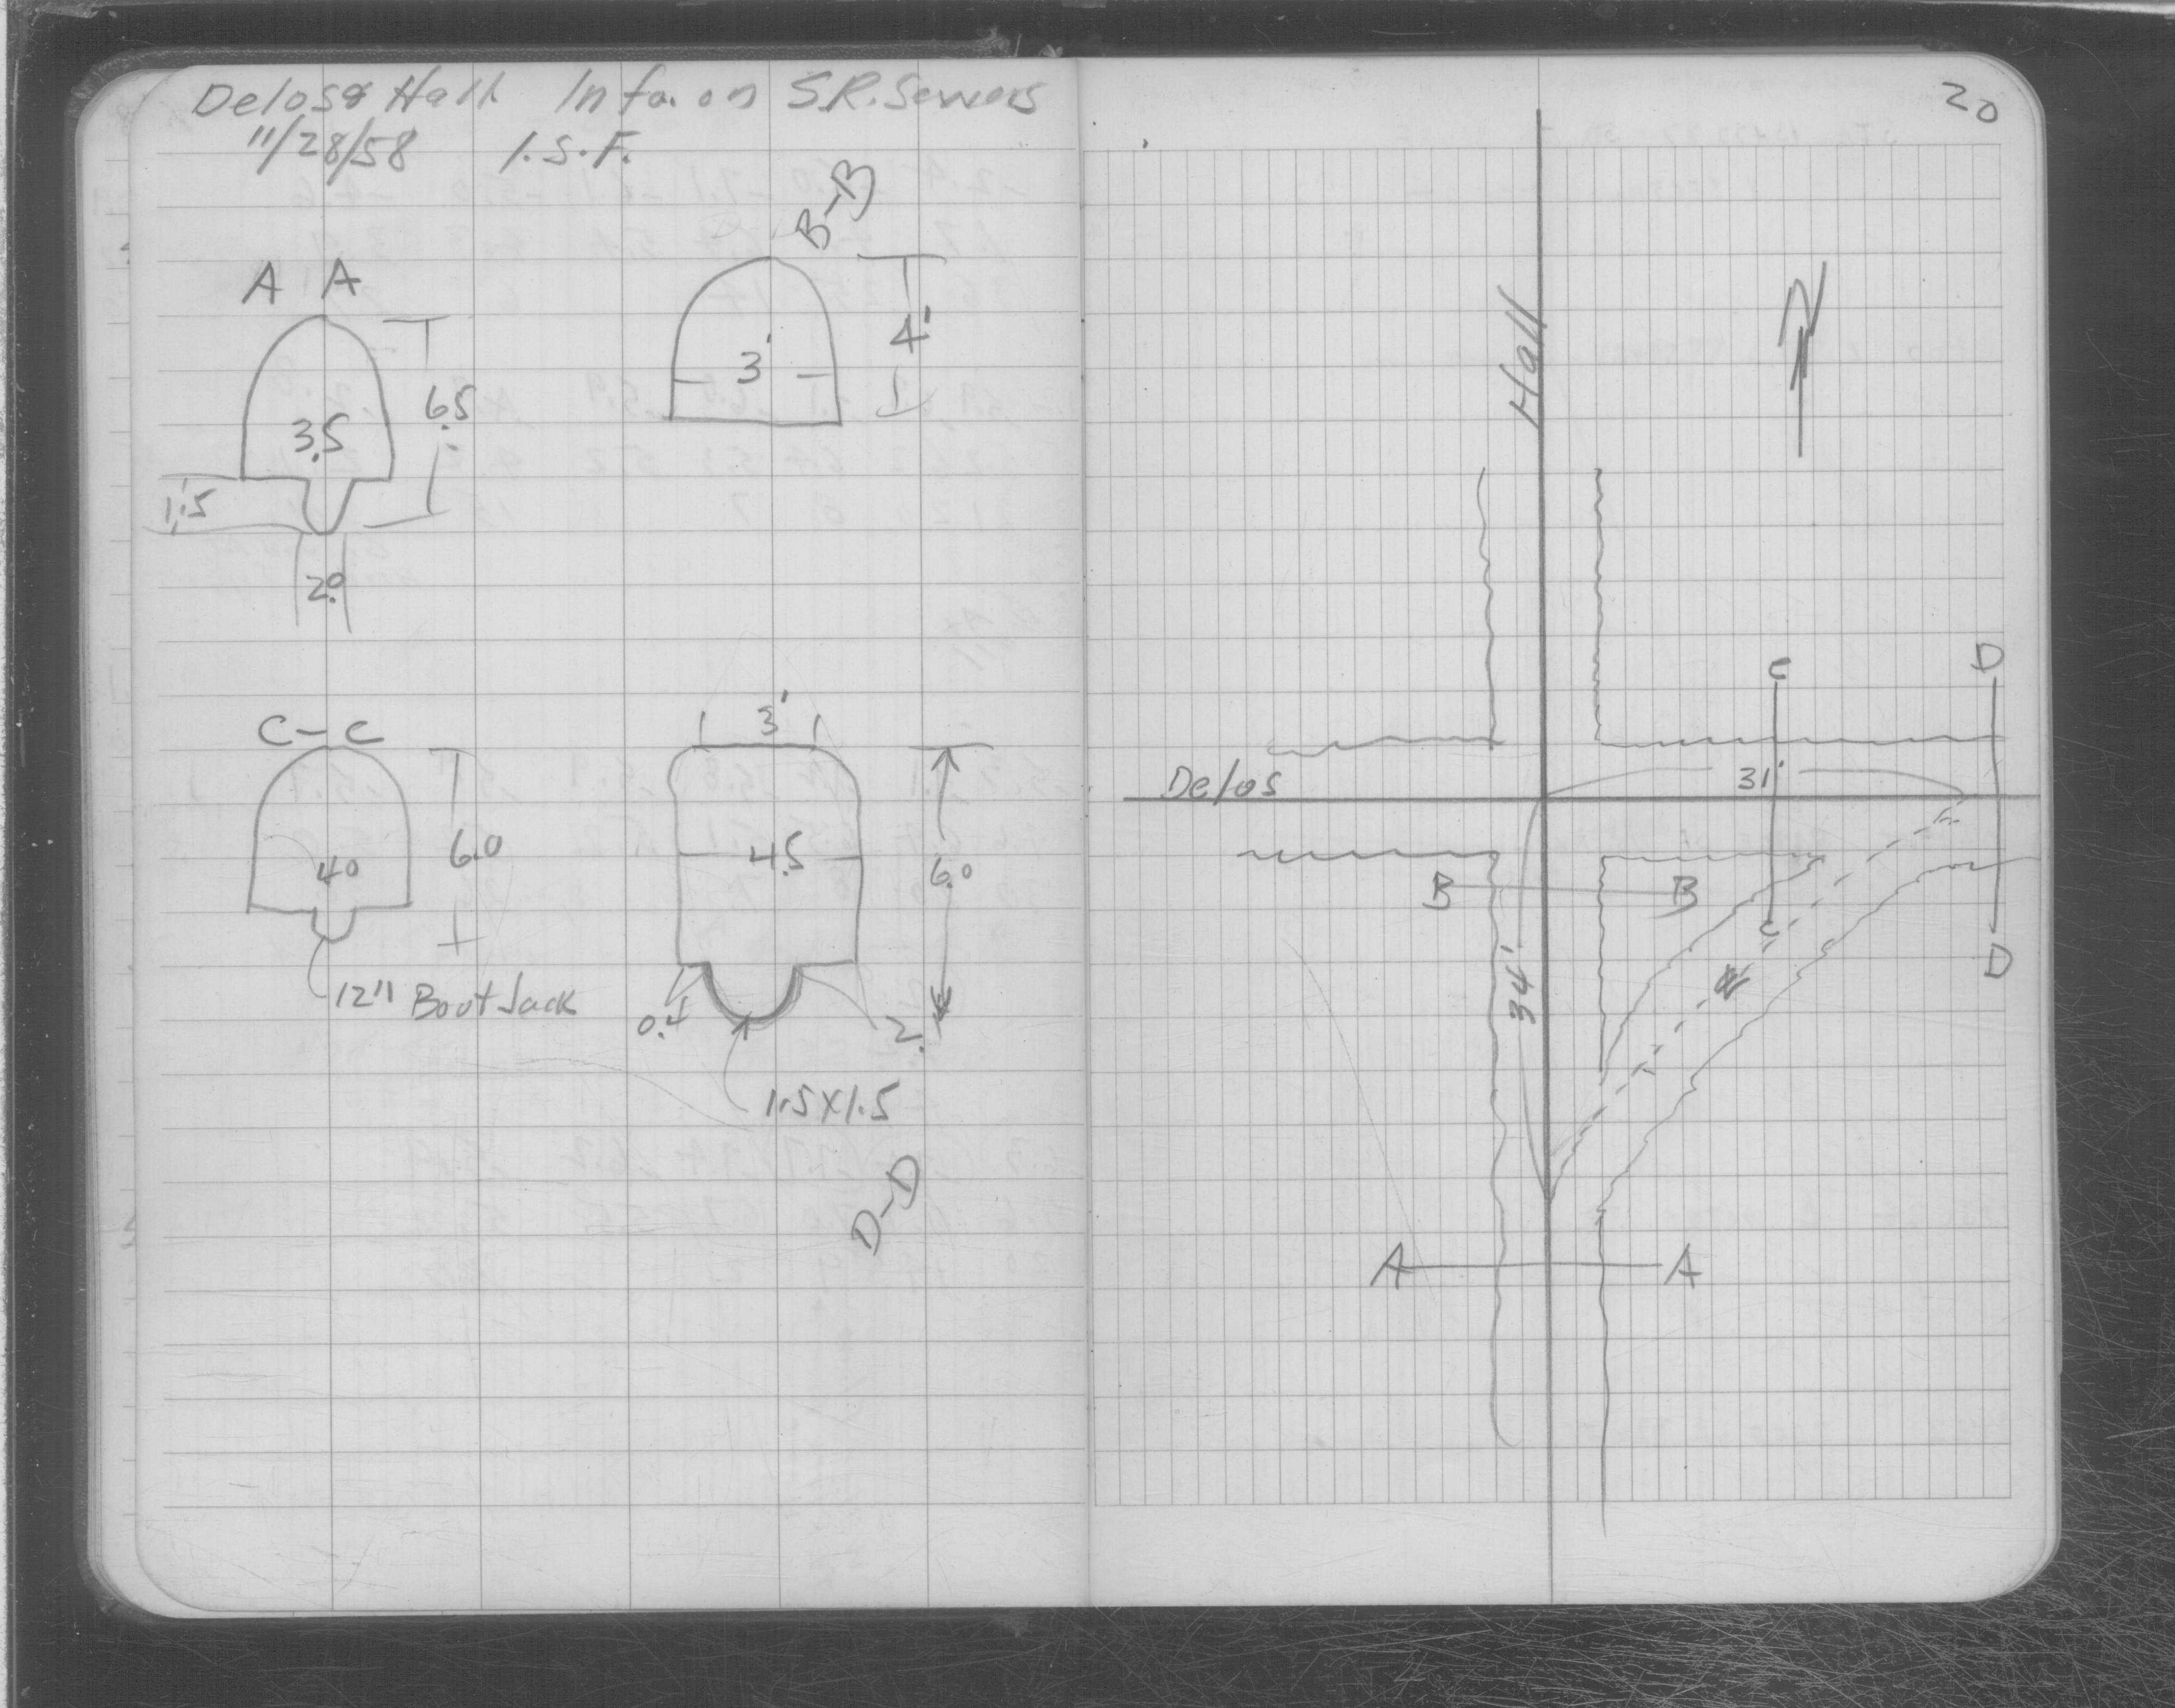 Delos & Hall Info. on S.R. Sewers
11/28/58 I.S.F.
A A
3.5
6.5
1.5
2.0
B-B
3'
4'
C-C
40
6.0
12" Boot Jack
3'
4.5
6.0
0.4
2.
1.5X1.5
D-D
20
Hall
N
C
D
Delos
31'
B B
C
D
34'
A A